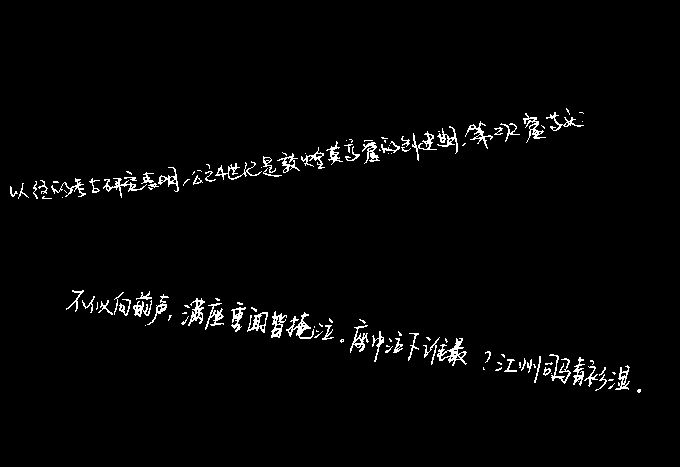 以往的考古研究表明,公元4世纪是敦煌莫高窟的创建期,第272窟等
不似向前声,满座重闻皆掩泣。座中泣下谁最?江州司马青衫湿.